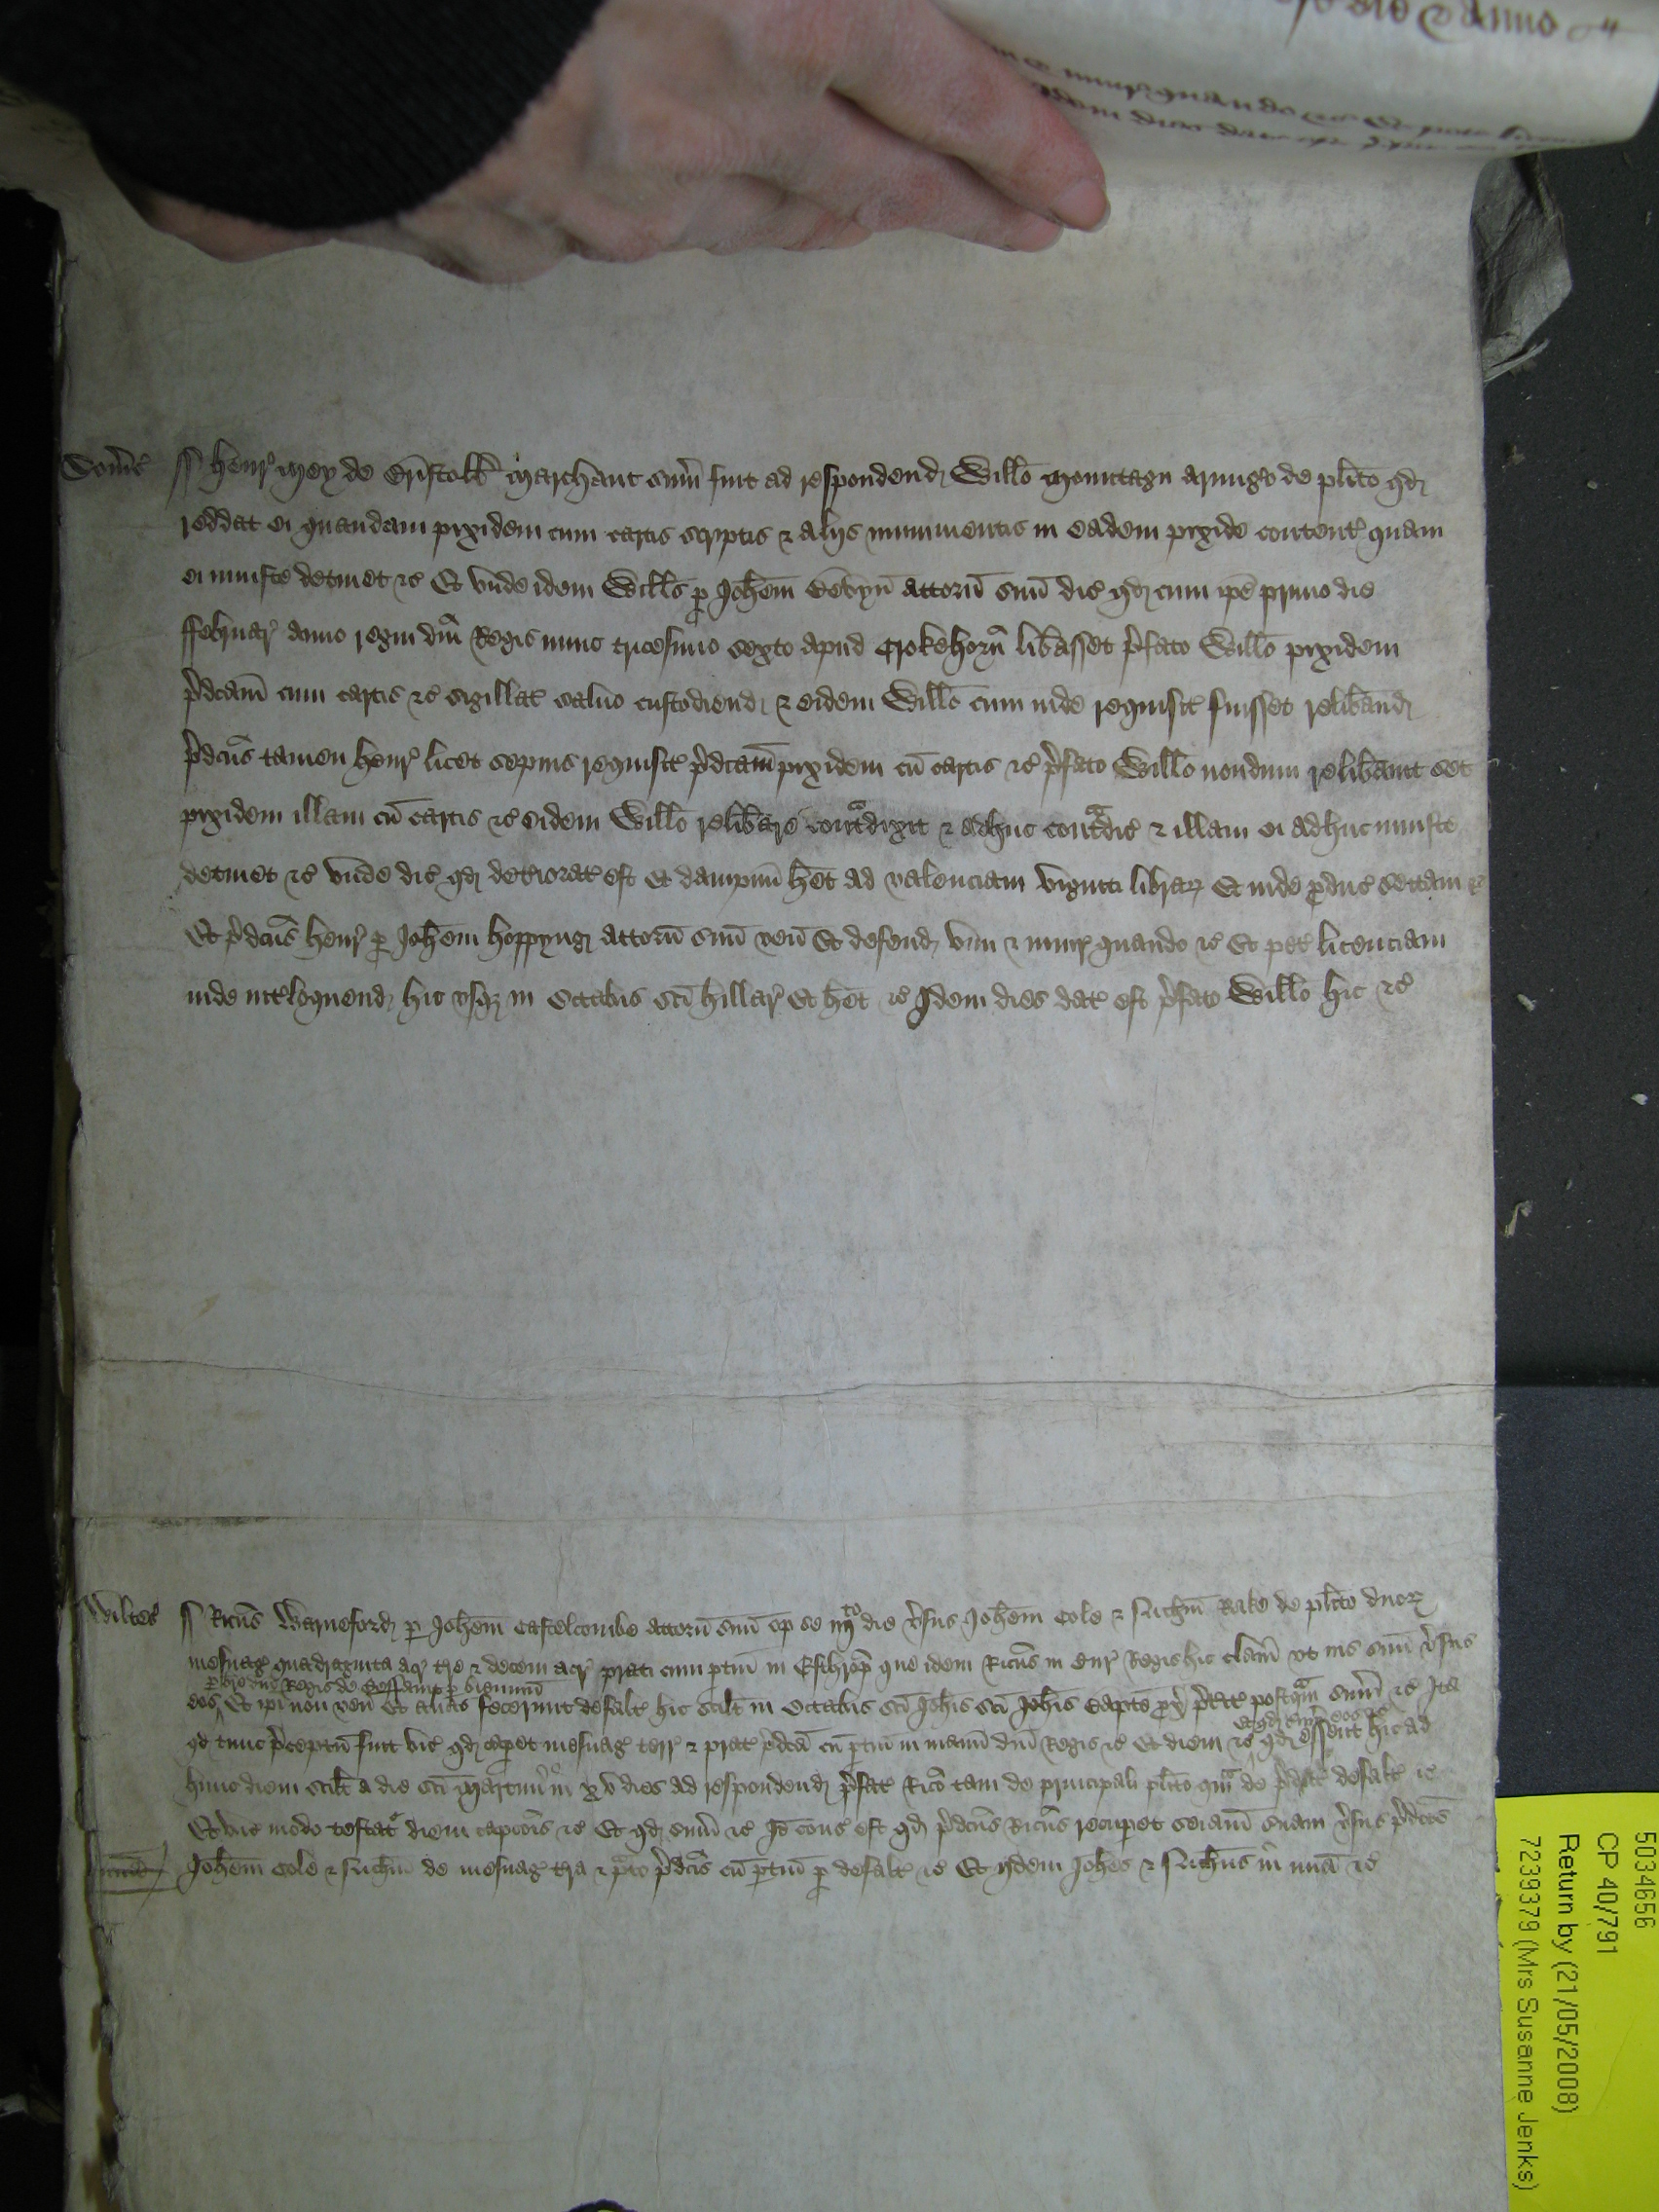 die & anno
Som̃s
ss Henr̃ Mey de Bristoll Marchant sum̃ fuit ad respondend Willo Mountagu Armigo de plito qd
reddat ei quandam pixidem cum cartis scriptis & alijs munimentis in eadem pixide content̃ quam
ei iniuste detinet &c Et unde idem Willus p Johem attorn̄ suū dic̃ qd cum ip̄e primo die
Februar̃ anno regni dñi Regis nunc tricesimo sexto apud Crokehorn̄ libasset p̃fato Willo pixidem
p̃dcam cum cartis &c sigillat̃ salvo custodiend & eidem Willo cum inde requisit̃ fuisset reliband
p̃dcus tamen Henr̃ licet sepius requisit̃ p̃dcam pixidem cū cartis &c p̃fato Willo nondum relibauit set
pixidem illam cū cartis &c eidem Willo relibare contᵃdixit & adhuc contᵃdic̃ & illam ei adhuc iniuste
detinet &c unde dic̃ qd deteriorat̃ est et dampnū h̄et ad valenciam viginti librar̃ Et inde p̄duc̃ sectam &c
Et p̃dcus Henr̃ p Johem Hoppyng attorn̄ suū ven̄ Et defend vim & iniur̃ quando &c Et pet̃ licenciam
inde int̃loquend hic usq in Octabis sci Hillar̃ Et h̄et &c Idem dies dat̃ est p̃fato Willo hic &c
Wiltes̃
ss Ricus Warneford p Johem Castelcombe attorn̄ suū op se iiijto die ṽsus Johem Cole & Ricm̄ Rake de plito duor̃
mesuag̃ quadraginta acr̃ tre & decem acr̃ prati cum ptin̄ in Esthrop que idem Ricus in cur̃ Regis hic clam̃ ut ius suū ṽsus
p bre dñi Regis de p biennium
eos Et ip̄i non ven̄ Et alias fecerunt defalt̃ hic scilt in Octabis sci Johis sci Johis Bapte p̄x̃ p̃t̃it̃ postqᵃm sum̃ &c Ita
Et qd sum̃ eos &c
qd tunc p̃ceptū fuit vic̃ qd caperet mesuag̃ terr̃ & prat̃ p̃dca cū ptin̄ in manū dñi Regis &c Et diem &c qd essent hic ad
hunc diem scilt a die sci Martini in xv dies ad respondend p̃fat̃ Rico tam de principali plito qᵃm de p̃dict̃ defalt̃ &c
Et vic̃ modo testat̃ diem capcois &c Et qd sum̃ &c Io cons̃ est qd p̃dcus Ricus recuperet seiam̃ suam ṽsus p̃dcos
Johem Cole & Ricm̄ de mesuag̃ tra & prato p̃dcis cū ptin̄ p defalt̃ &c Et ijdem Johes & Ricus in mia &c
5034656
CP 40/791
Return by (21/05/2008)
7239379 (Mrs Susanne Jenks)